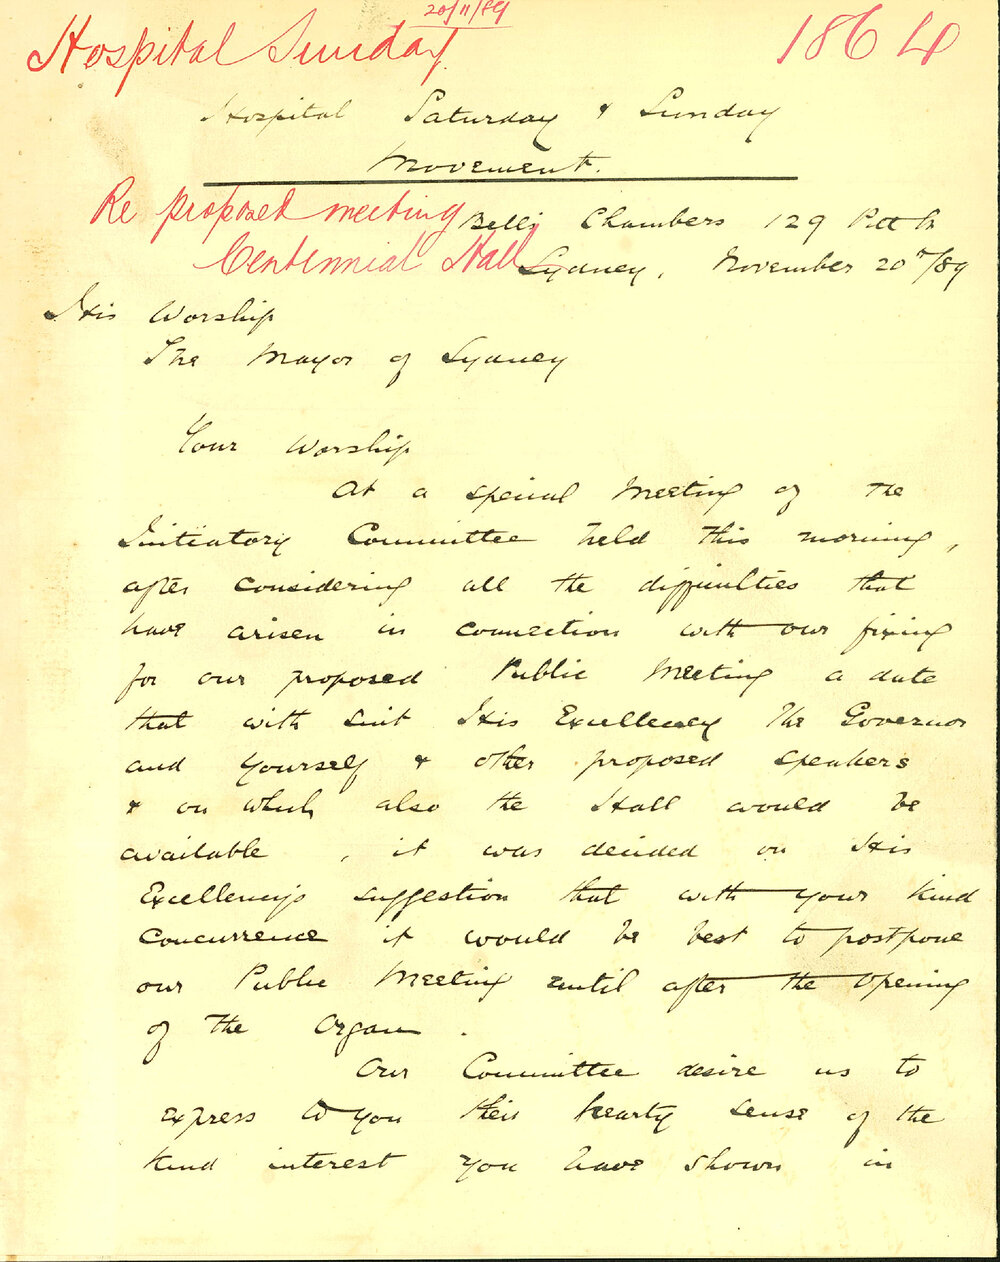 20/11/89
Hospital Sunday 1864
Hospital Saturday & Sunday
Movement.
Re proposed meeting
Centennial Hall
Bell's Chambers 129 Pitt St
Sydney, November 20th/89
His Worship
The Mayor of Sydney
Your Worship
At a special Meeting of the
Initiatory Committee held this morning,
after considering all the difficulties that
have arisen in connection with our fixing
for our proposed Public Meeting a date
that with suit His Excellency The Governor
and yourself & other proposed speakers
& on which also the Hall would be
available, it was decided on His
Excellency's suggestion that with your kind
concurrence it would be best to postpone
our Public Meeting until after the Opening
of the Organ.
Our Committee desire us to
express to you their hearty sense of the
kind interest you have shown in